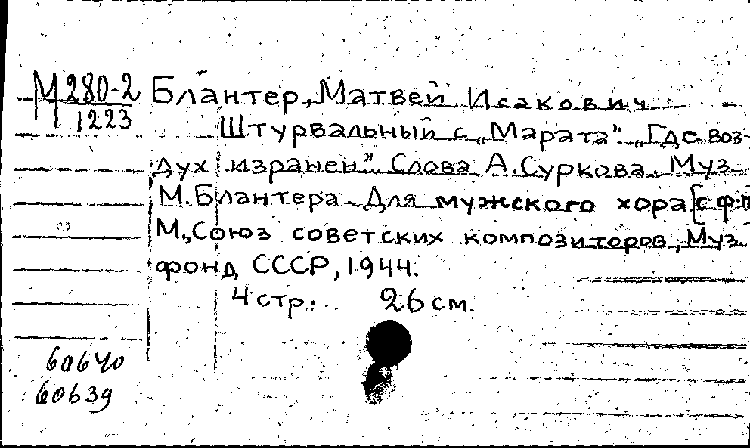 М 280-2
1223
Блантер, Матвей Исакович
Штурвальный с „Марата". „Где воз-
дух изранен". Слова А.Суркова. Муз.
М.Блантера. Для мужского хора [с ф.-п
М., Союз советских композиторов, Муз.
фонд СССР, 1944.
4 стр. 26 см.
60640
60639